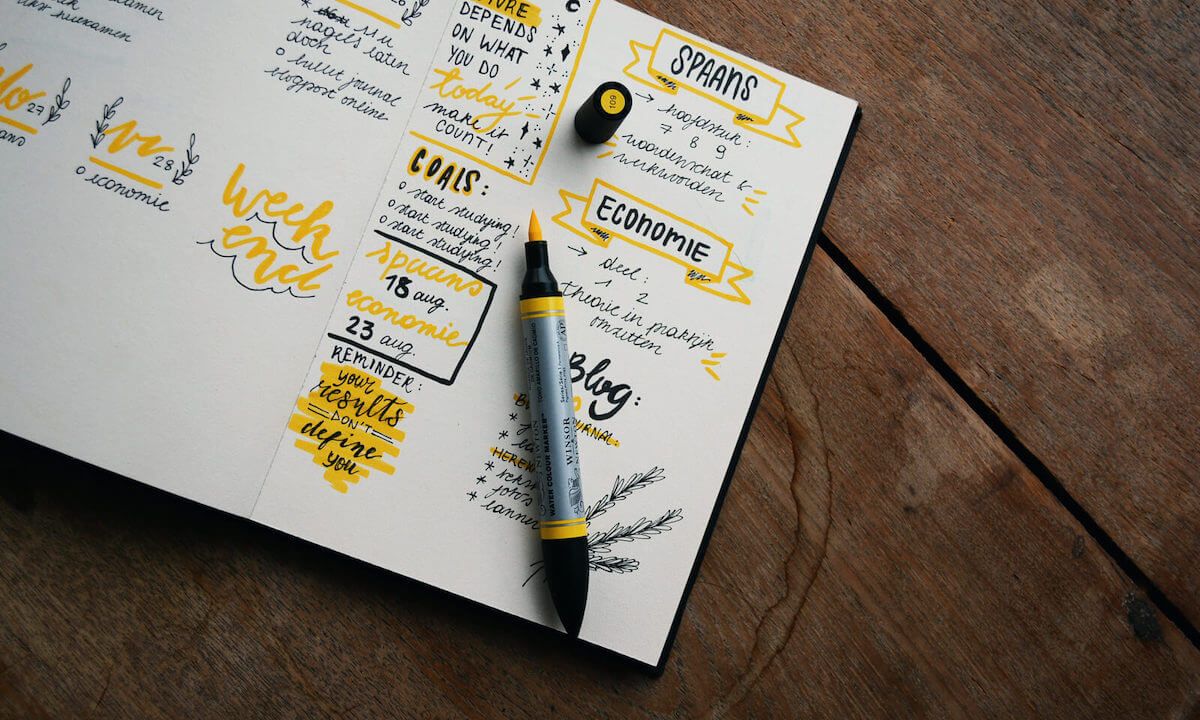 nagels laten
doch
bullet journal
blogpost online
do 27
vr 28
economie
week
end
DEPENDS
ON WHAT
YOU DO
today
make it
COUNT!
GOALS:
start studying!
start studying!
start studying!
spaans
18 aug.
economie
23 aug.
REMINDER:
your
results
DON'T
define
you
109
SPAANS
→ hoofdstuk:
7 8 9
woordenschat &
werkwoorden
ECONOMIE
→ deel:
1 2
theorie in praktijk
omzetten
Blog:
WINSOR
NEWTON
WATER COLOUR MARKER